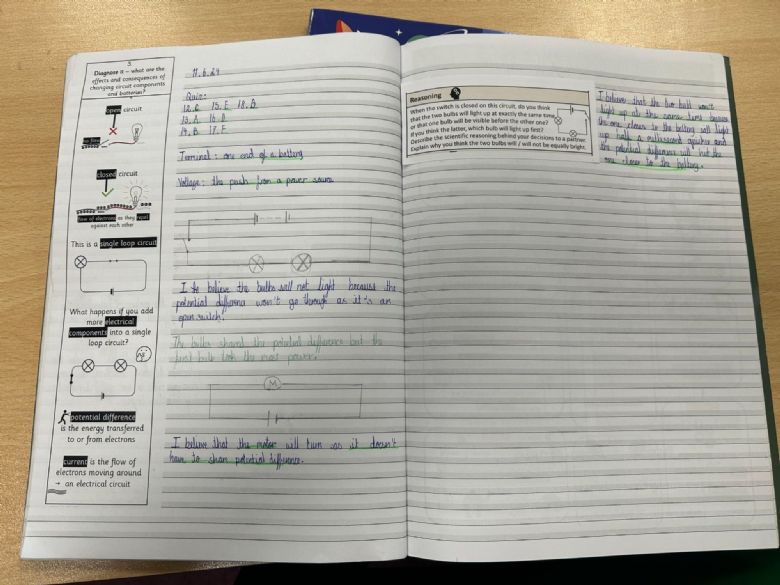 3.
Diagnose it – what are the
effects and consequences of
changing circuit components
and batteries?
open circuit
no flow
closed circuit
flow of electrons as they repel
against each other
This is a single loop circuit
What happens if you add
more electrical
components into a single
loop circuit?
potential difference
is the energy transferred
to or from electrons
current is the flow of
electrons moving around
→ an electrical circuit
Quiz:
12. C 15. E 18. B
13. A 16. D
14. B 17. F
Terminal: one end of a battery
Voltage: the push from a power source
I believe the bulbs will not light because the
potential difference won't go through as it's an
open switch.
The bulbs shared the potential difference but the
first bulb took the most power.
M
I believe that the motor will turn as it doesn't
have to share potential difference.
Reasoning
When the switch is closed on this circuit, do you think
that the two bulbs will light up at exactly the same time
or that one bulb will be visible before the other one?
If you think the latter, which bulb will light up first?
Describe the scientific reasoning behind your decisions to a partner.
Explain why you think the two bulbs will / will not be equally bright.
I believe that the two bulb won't
light up at the same time because
the one closer to the battery will light
up half a millisecond quicker and
the potential difference will hit the
one closer to the battery.